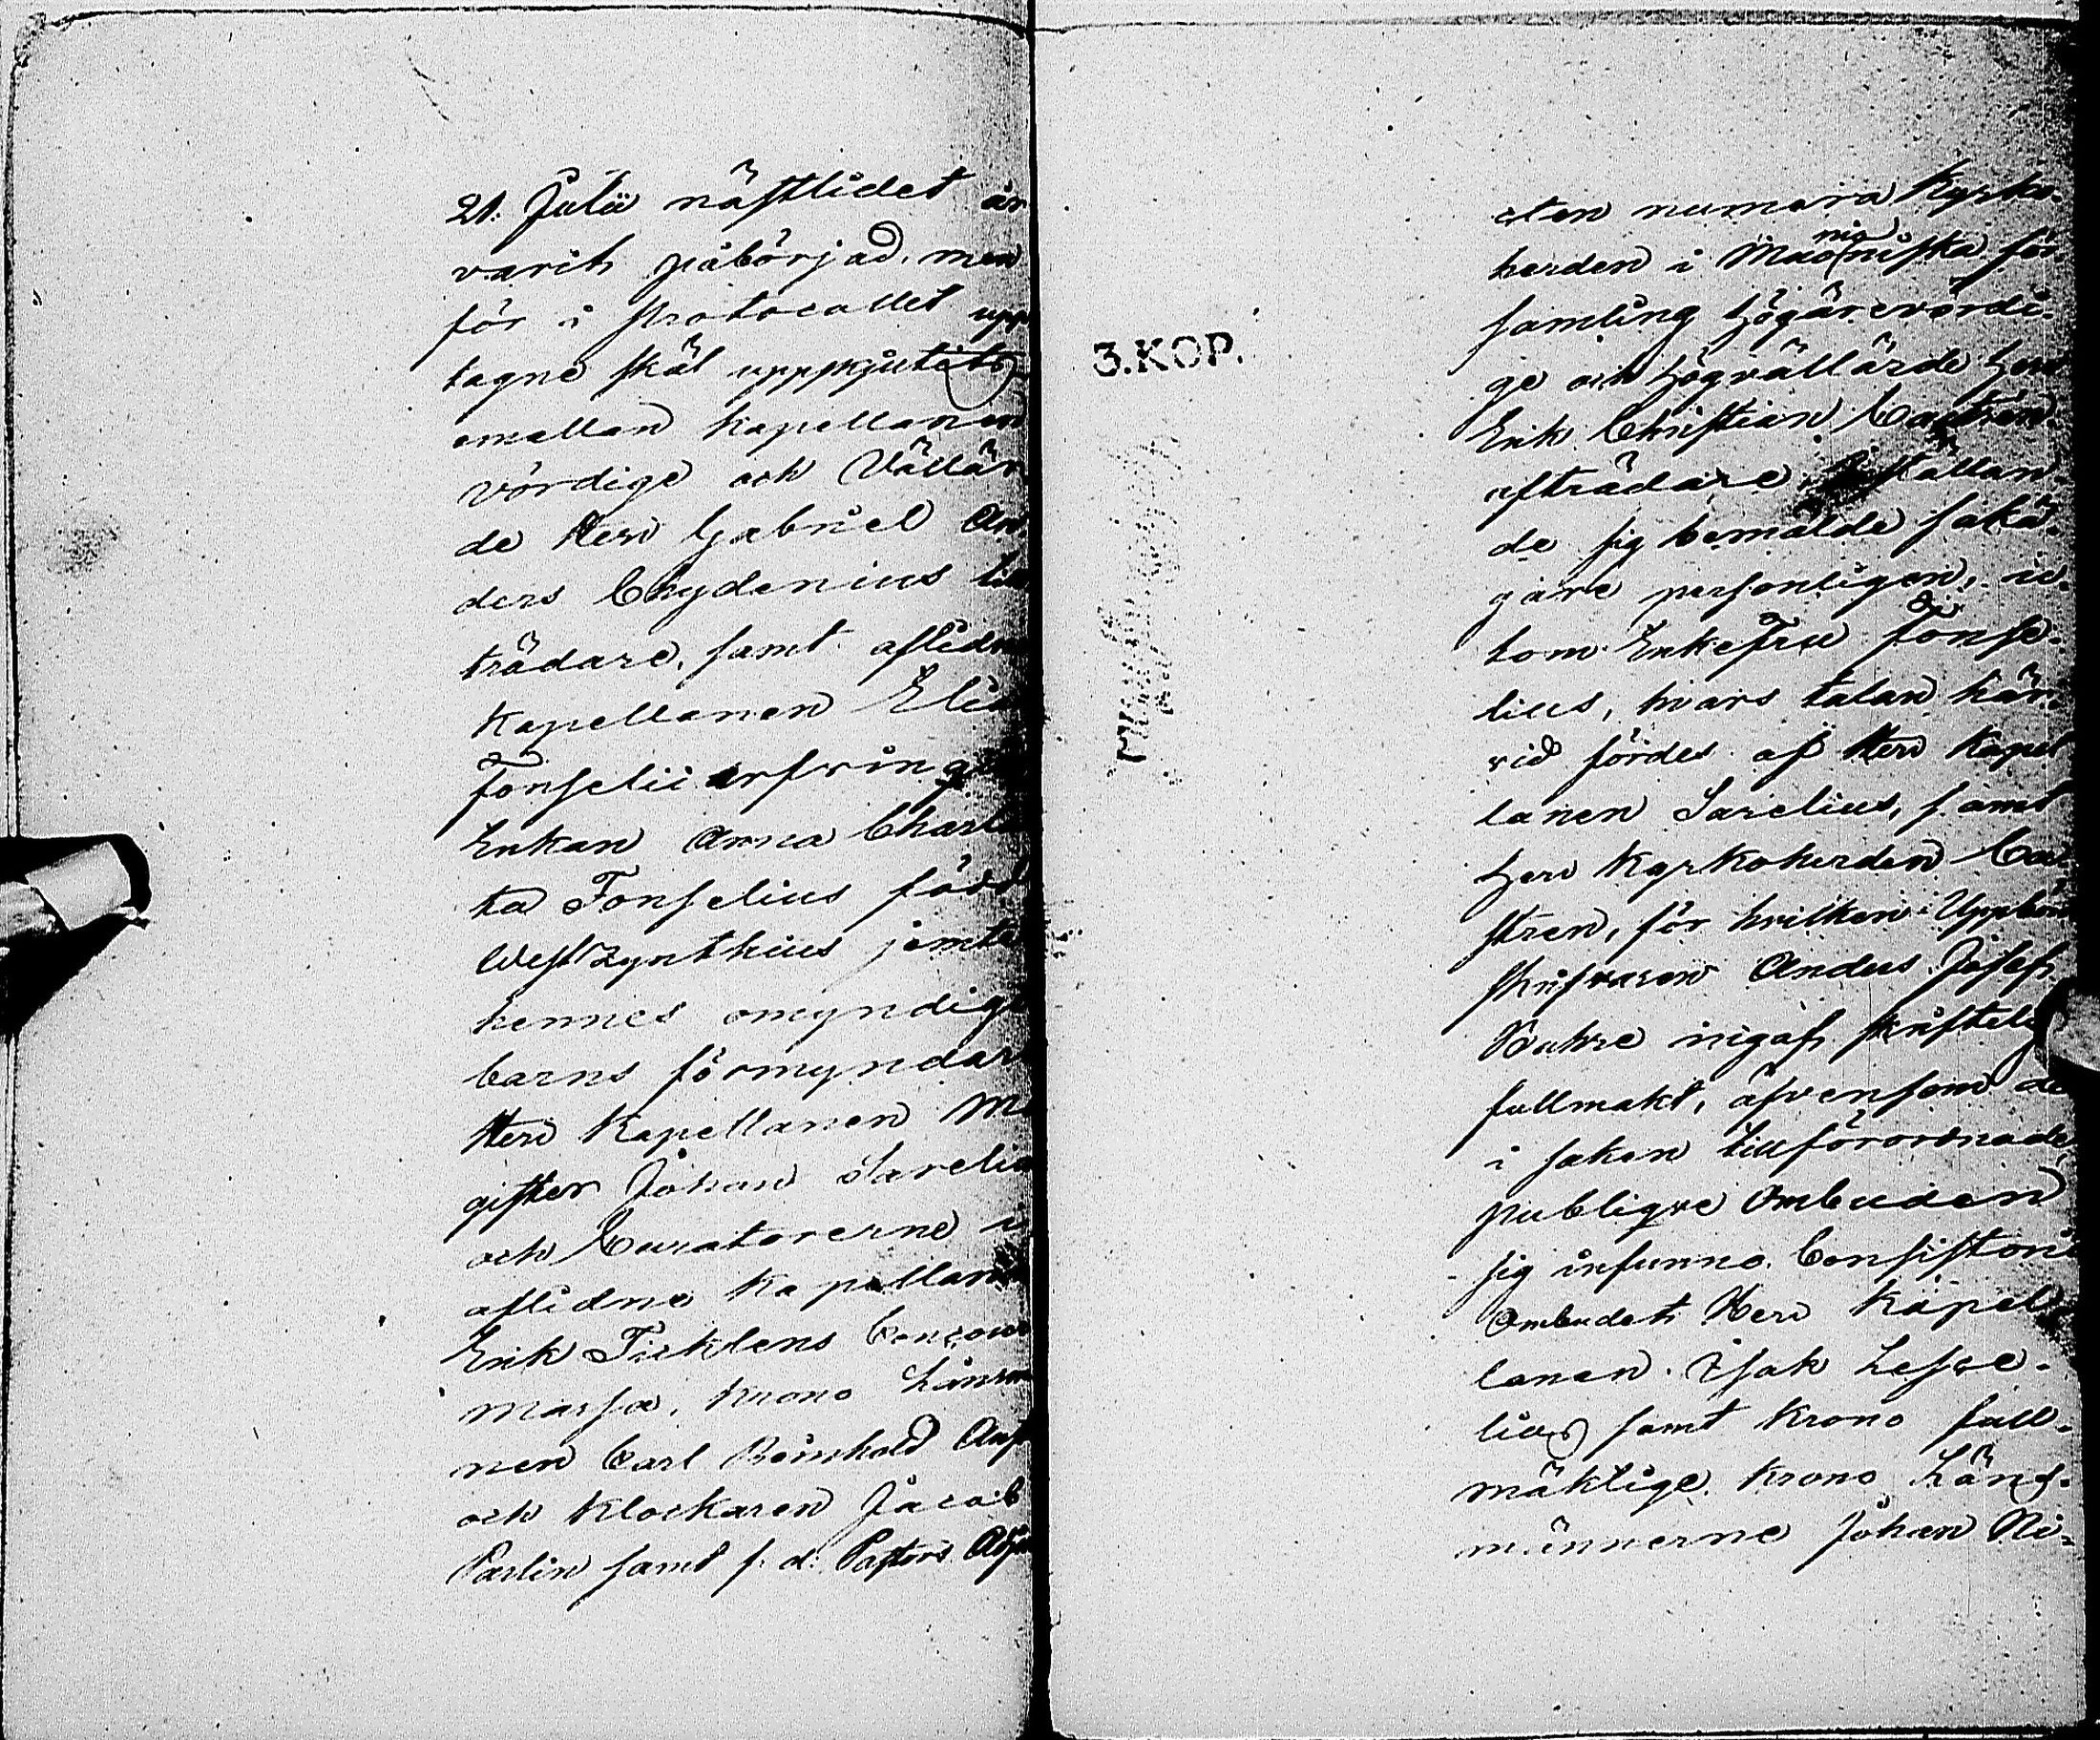 21. Julii nästlidet år
varit påbörjad, men
för i Protocollet upp
tagne skäl uppskjutits,
emellan kapellanen
vördige och Vällär
de Herr Gabriel An
ders Chydenius till
trädare, samt aflidne
Kapellanen Elia
Fonselii arfvingar
Enkan Anna Charlo
ta Fonselius född
Westzynthius jemte
hennes omyndige
barns förmyndare
Herr Kapellanen Ma
gister Johan Sarelius
och Curatorerne i
aflidne kapellanen
Erik Ticklens Concours
massa, Krono Länsma
nen Carl Reinhold
och Klockaren Jacob
Parlin samt f. d. Pastors Adj
3. KOP.
cten numera Kyrko-
herden i Muonioniska för
samling Högärevördi-
ge och Högvällärde Herr
Erik Christian Castren
afträdare, inställan
de sig bemälde sakä-
gare personligen, u-
tom Enkefru Fonse-
lius, hvars talan här-
vid fördes af Herr Kapel
lanen Sarelius, samt
Herr Kyrkoherden Ca
stren, för hvilken Uppbörds
skrifvaren Anders Josef
Buhre ingaf skriftelig
fullmakt, äfvensom de
i saken tillförordnade
publique Ombuden
sig infunno. Consistorii
Ombudet Herr Kapel
lanen Isak
lius samt Krono full-
mäktige Krono Läns-
männerne Johan Ni-